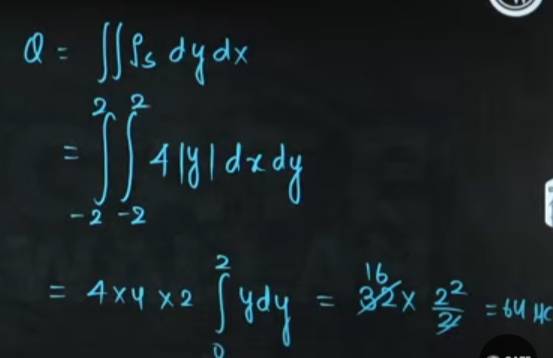 Q = ∬ ρs dy dx
= ∫₋₂² ∫₋₂² 4|y| dx dy
= 4 × 4 × 2 ∫₀² y dy = 16 32 × 2²/2 = 64 μC